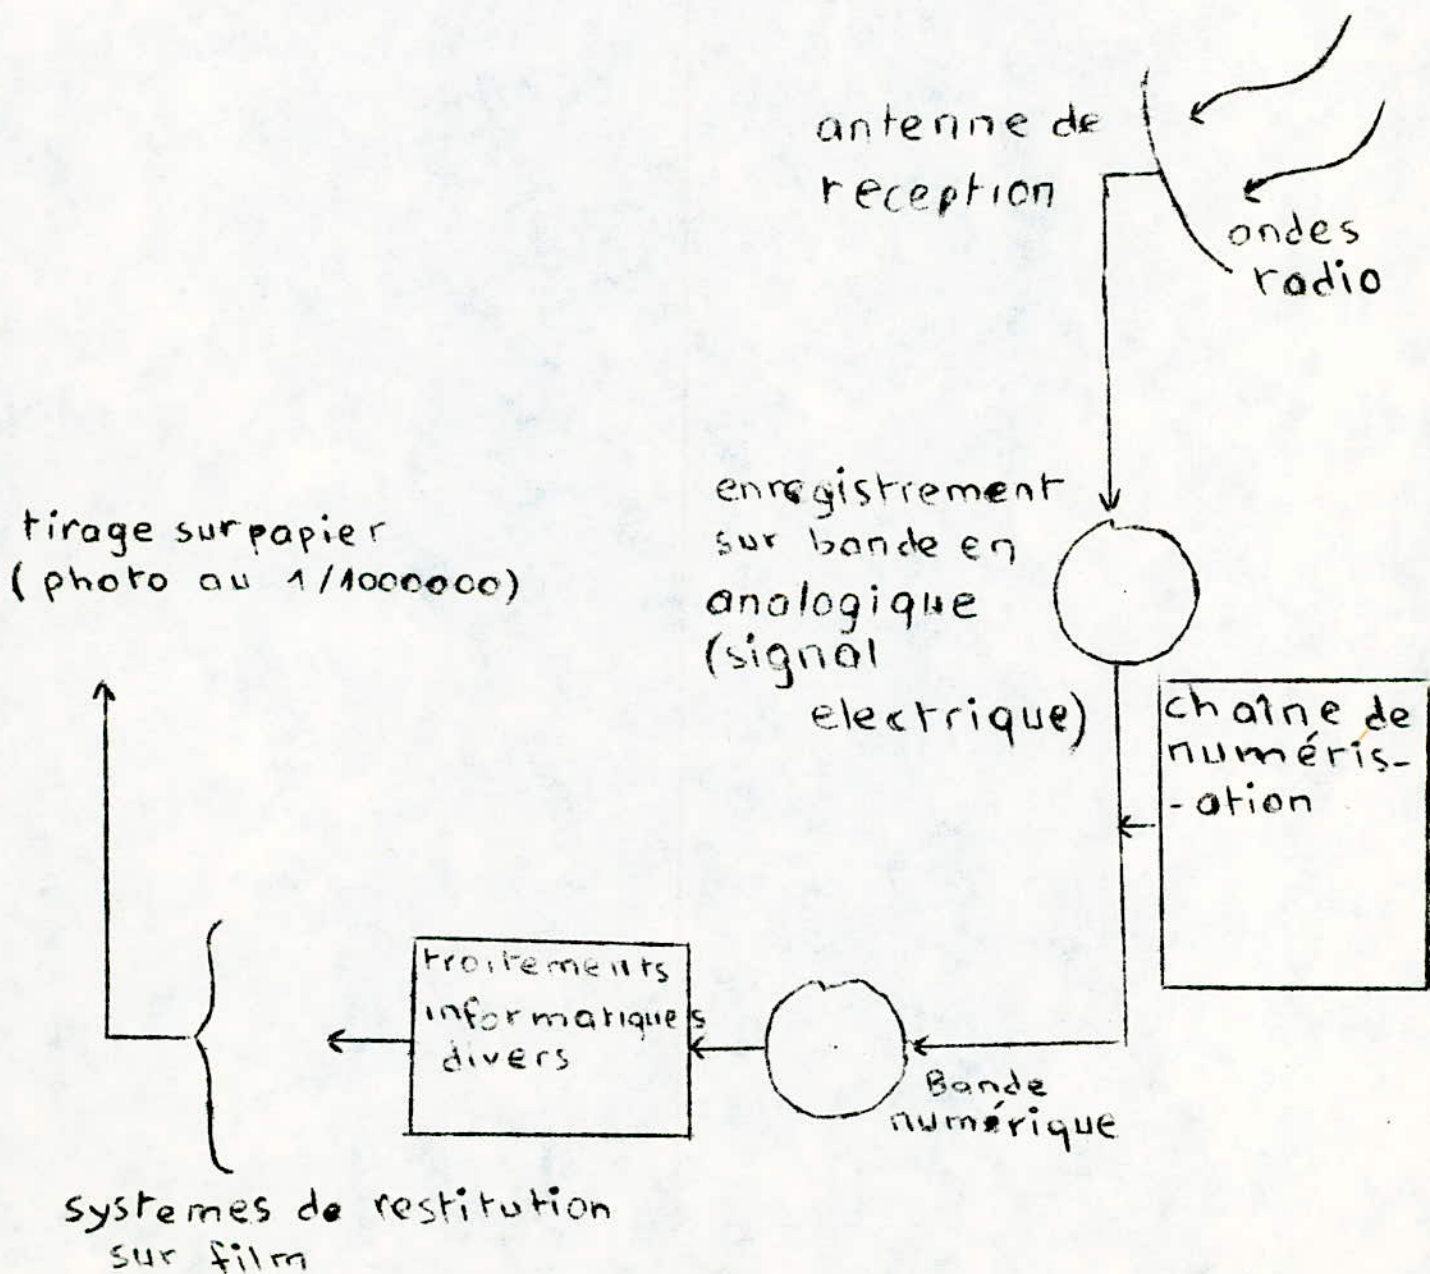 antenne de
reception
ondes
radio
enregistrement
sur bande en
analogique
(signal
electrique)
chaîne de
numéris-
-ation
Bande
numérique
traitements
informatiques
divers
systemes de restitution
sur film
tirage sur papier
(photo au 1/1000000)